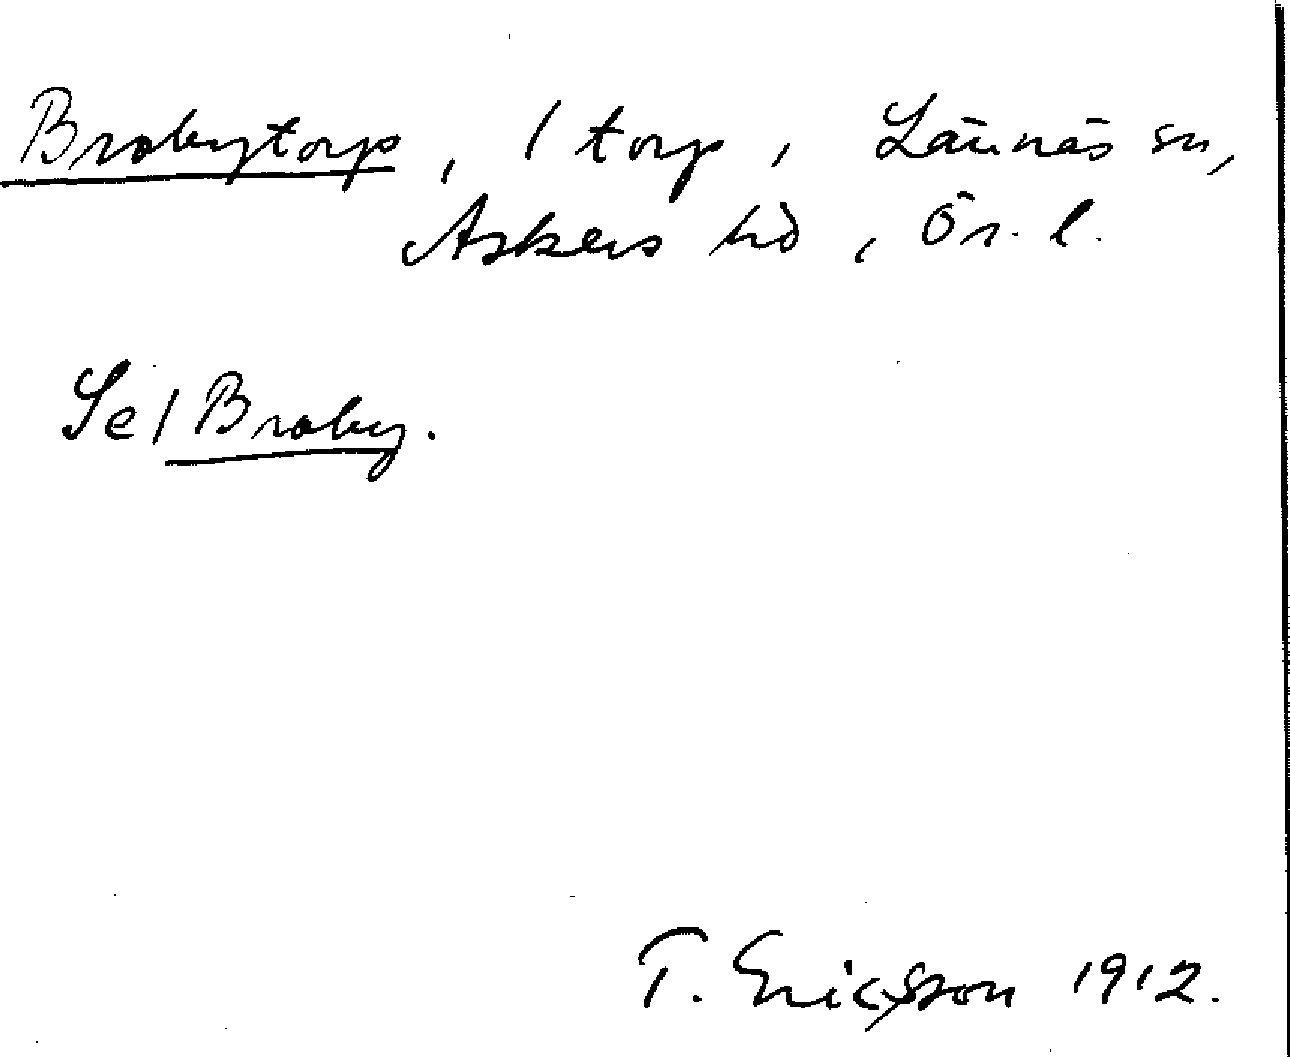 Brobytorp, / torp, Lännäs sn,
Askers hd, Ör. l.
Se / Broby.
T. Ericsson 1912.